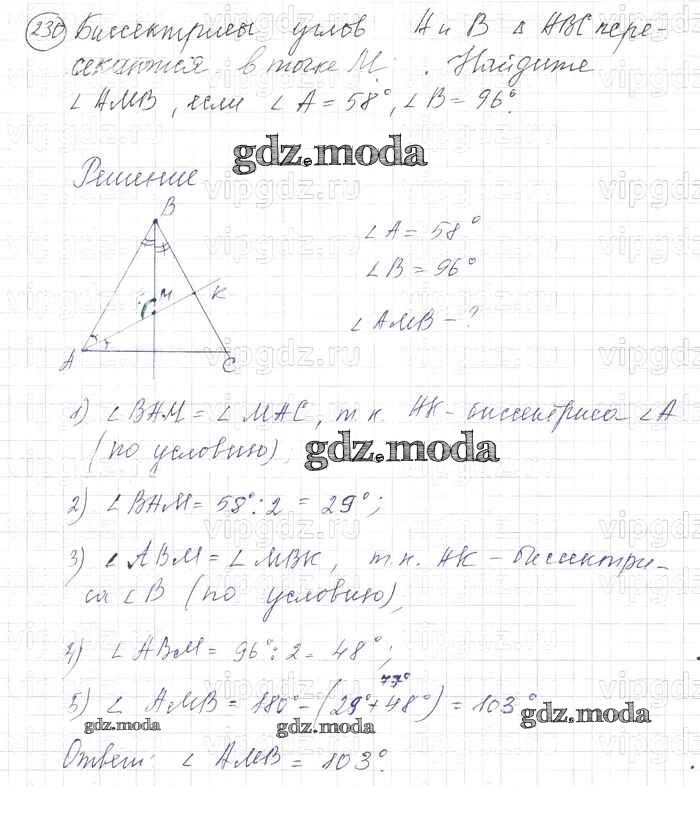 230 Биссектрисы углов A и B △ ABC пере-
секаются в точке M. Найдите
∠AMB, если ∠A = 58°, ∠B = 96°.
gdz.moda
Решение
vipgdz.ru
B
∠A = 58°
∠B = 96°
M
K
∠AMB - ?
A
C
1) ∠BAM = ∠MAC, т.к. AK - биссектриса ∠A
(по условию)
gdz.moda
2) ∠BAM = 58° : 2 = 29°;
3) ∠ABM = ∠MBK, т.к. AK - биссектри-
са ∠B (по условию),
4) ∠ABM = 96° : 2 = 48°;
77°
5) ∠AMB = 180° - (29° + 48°) = 103°
gdz.moda gdz.moda gdz.moda
Ответ: ∠AMB = 103°.